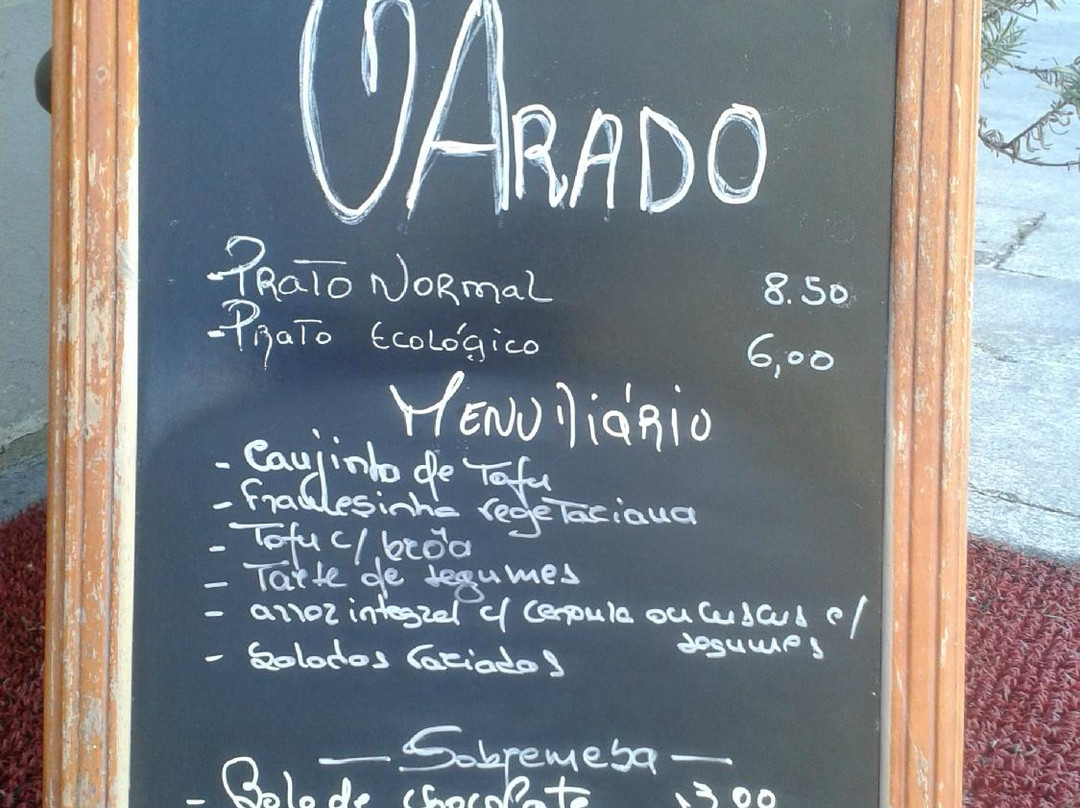 O ARADO
- PRATO NORMAL 8.50
- PRATO ECOLÓGICO 6,00
MENU Diário
- Caujinho de Tofu
- Francesinha vegetariana
- Tofu c/ broa
- Tarte de legumes
- arroz integral c/ cenoula ou Cuscus c/
legumes
- Saladas Variadas
— Sobremesa —
- Bolo de chocolate